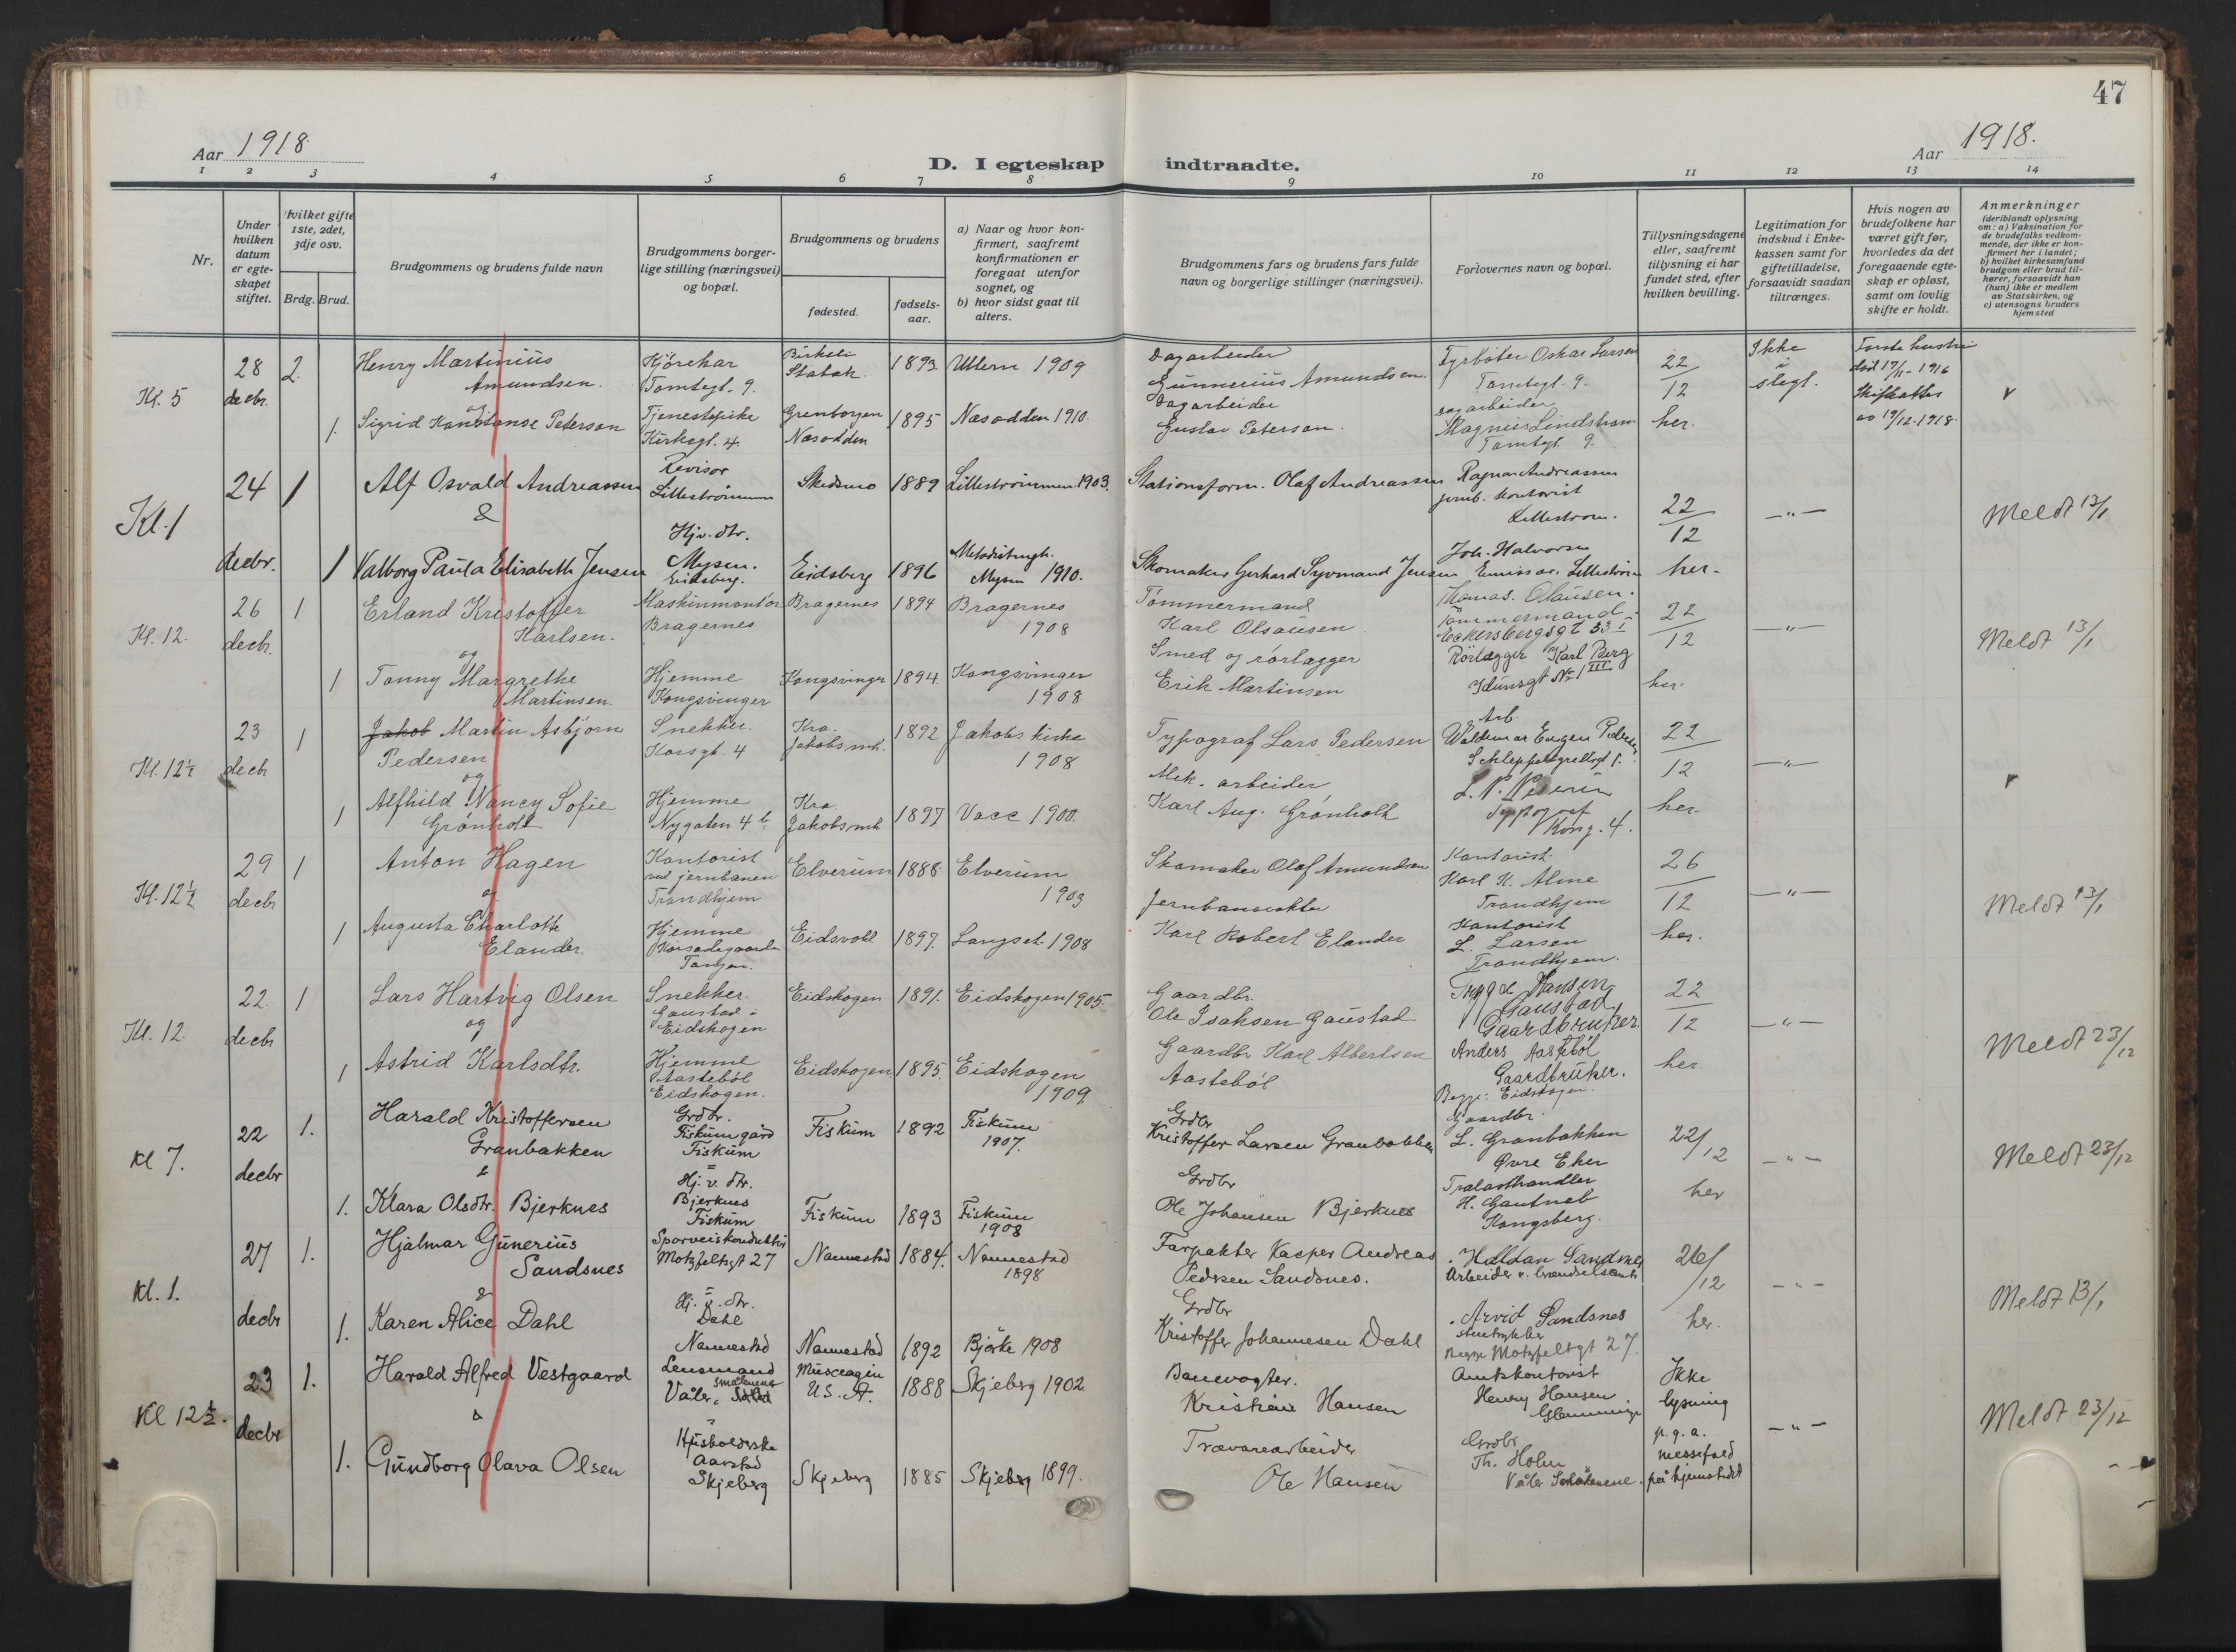 47
Aar 1918.
D. I egteskap indtraadte.
Aar 1918.
1 2 3 4 5 6 7 8 9 10 11 12 13 14
Nr.
Under hvilken datum er egte-skapet stiftet.
Hvilket gifte 1ste, 2det, 3dje osv.
Brdg. Brud.
Brudgommens og brudens fulde navn
Brudgommens borger-lige stilling (næringsvei) og bopæl.
Brudgommens og brudens
fødested.
fødsels-aar.
a) Naar og hvor kon-firmert, saafremt konfirmationen er foregaat utenfor sognet, og
b) hvor sidst gaat til alters.
Brudgommens fars og brudens fars fulde navn og borgerlige stillinger (næringsvei).
Forlovernes navn og bopæl.
Tillysningsdagene eller, saafremt tillysning ei har fundet sted, efter hvilken bevilling.
Legitimation for indskud i Enke-kassen samt for giftetilladelse, forsaavidt saadan tiltrænges.
Hvis nogen av brudefolkene har været gift før, hvorledes da det foregaaende egte-skap er opløst, samt om lovlig skifte er holdt.
Anmerkninger
(deriblandt oplysning om: a) Vaksination for de brudefolks vedkom-mende, der ikke er kon-firmert her i landet; b) hvilket kirkesamfund brudgom eller brud til-hører, forsaavidt han (hun) ikke er medlem av Statskirken, og c) utensogns bruders hjemsted
Kl. 5
28 decbr.
2.
Henry Martinius Amundsen.
og
Kjørekar
Tomtegt. 9.
1893
Ullern 1909
Dagarbeider
Gunnerius Amundsen.
Fyrbøter Oskar Larsen
Tomtegt. 9.
22/12
her.
Ikke i slegt.
Første hustru
død 17/11-1916
Skifteattest
av 19/12-1918.
1.
Sigrid Konstanse Peterson
Tjenestepike
Kirkegt. 4.
Nesodden
1895
Nesodden 1910.
Dagarbeider
Gustav Peterson.
Dagarbeider
Magnus Lindstrøm
Tomtegt. 9.
Kl. 1
24 decbr.
1
Alf Osvald Andreassen
&
Revisor
Lillestrømmen
Skedsmo
1889
Lillestrømmen 1903.
Stationsform. Olaf Andreassen
Ragnar Andreassen
jernb. kontorist
Lillestrøm.
22/12
her.
—"—
Meldt 13/1
1
Valborg Paula Elisabeth Jensen
Hj.v. dtr.
Mysen.
Eidsberg.
Eidsberg
1896
Mysen 1910.
Skomaker Gerhard Syvmand Jensen
Joh. Halvorsen
Emissær Lillestrøm
Kl. 12.
26 decbr.
1
Erland Kristoffer Karlsen.
og
Maskinmontør
Bragernes
Bragernes
1894
Bragernes 1908
Tømmermand
Karl Olausen
Thomas. Olausen.
Tømmermand
Eckersbergsgt 33 I
22/12
her.
—"—
Meldt 13/1
1
Tonny Margrethe Martinsen.
Hjemme
Kongsvinger
Kongsvinger
1894
Kongsvinger 1908
Smed og rørlægger
Erik Martinsen
Rørlægger Karl Berg
Idunsgt No 1 III
Kl. 12½
23 decbr
1
Jakob Martin Asbjørn Pedersen
og
Snekker.
Korsgt. 4
Kra.
Jakobs mh.
1892
Jakobs kirke 1908
Typograf Lars Pedersen
Arb.
Waldemar Eugen Pedersen
Schleppegrellsgt 1.
22/12
her.
—"—
1
Alfhild Nancy Sofie Grønholt
Hjemme
Nygaten 4 b
Kra.
Jakobs mh
1897
Mek. arbeider
Karl Aug. Grønholt
Typograf
Kl. 12½
29 decbr
1
Anton Hagen
og
Kontorist
ved jernbanen
Trondhjem
Elverum
1888
Elverum 1903
Skomaker Olaf Amundsen
Kontorist
Karl K. Alme
Trondhjem
26/12
her.
—"—
Meldt 13/1
1
Augusta Charlotte Elander.
Hjemme
Tangen.
Eidsvold
1897.
Langset. 1908
Jernbanevokter
Karl Robert Elander
Kontorist
L. Larsen
Trondhjem.
Kl. 12.
22. decbr
1
Lars Hartvig Olsen
og
Snekker.
Gaustad i
Eidskogen
Eidskogen
1891.
Eidskogen 1905.
Gaardbr.
Ole Isaksen Gaustad.
Trygve Hansen
Gaustad,
Gaardbruker.
22/12
her.
—"—
Meldt 23/12
1
Astrid Karlsdtr.
Hjemme
Aastebøl
Eidskogen.
Eidskogen
1895.
Eidskogen 1909.
Gaardbr Karl Albertsen
Aastebøl
Anders Aastebøl
Gaardbruker.
Begge: Eidskogen.
Kl 7.
22 decbr
1.
Harald Kristoffersen Granbakken
&
Grdbr.
Fiskum gård
Fiskum
Fiskum
1892
Fiskum 1907.
Grdbr
Kristoffer Larsen Granbakken
Gaardbr.
L. Granbakken
Øvre Eker
22/12
her
—"—
Meldt 23/12
1.
Klara Olsdtr. Bjerknes
Hj. v. dtr.
Bjerknes
Fiskum
Fiskum
1893
Fiskum 1908
Grdbr
Ole Johansen Bjerknes
Trælasthandler
H. Gautneb
Kongsberg.
Kl. 1.
27 decbr
1.
Hjalmar Gunerius Sandsnes
&
Sporveiskonduktør
Motzfeltsgt 27
Nannestad
1884.
Nannestad 1898
Farpakter Kasper Andreas
Pedersen Sandsnes.
Halfdan Sandsnes
26/12
her.
—"—
Meldt 13/1
1.
Karen Alice Dahl
Hj. v. dtr.
Dahl
Nannestad
Nannestad
1892
Bjørke 1908
Grdbr
Kristoffer Johannesen Dahl
Arvid Sandsnes
Begge Motzfeltsgt 27.
Kl 12½.
23 decbr
1.
Harald Alfred Vestgaard
&
Lensmand
Våler, Smålenene
U.S.A.
1888
Skjeberg 1902
Banevogter.
Kristian Hansen
Amtskontorist
Henry Hansen
Glemminge
Ikke
lysning
p.g.a.
messefald
på hjemstedet
—"—
Meldt 23/12
1.
Gundborg Olava Olsen
Husholderske
Aarstad
Skjeberg
Skjeberg
1885
Skjeberg 1899.
Trævarearbeider
Ole Hansen
Grdbr
Th. Holm
Våler Smålenene.